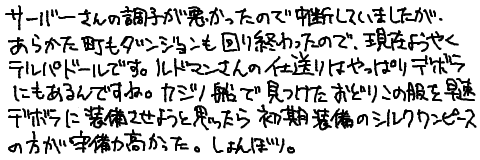 サーバーさんの調子が悪かったので中断していましたが、
あらかた町もダンジョンも回り終わったので、現在ようやく
テルパドールです。ルドマンさんの仕送りはやっぱりデボラ
にもあるんですね。カジノ船で見つけたおどりこの服を早速
デボラに装備させようと思ったら初期装備のシルクワンピース
の方が守備力高かった。しょんぼり。